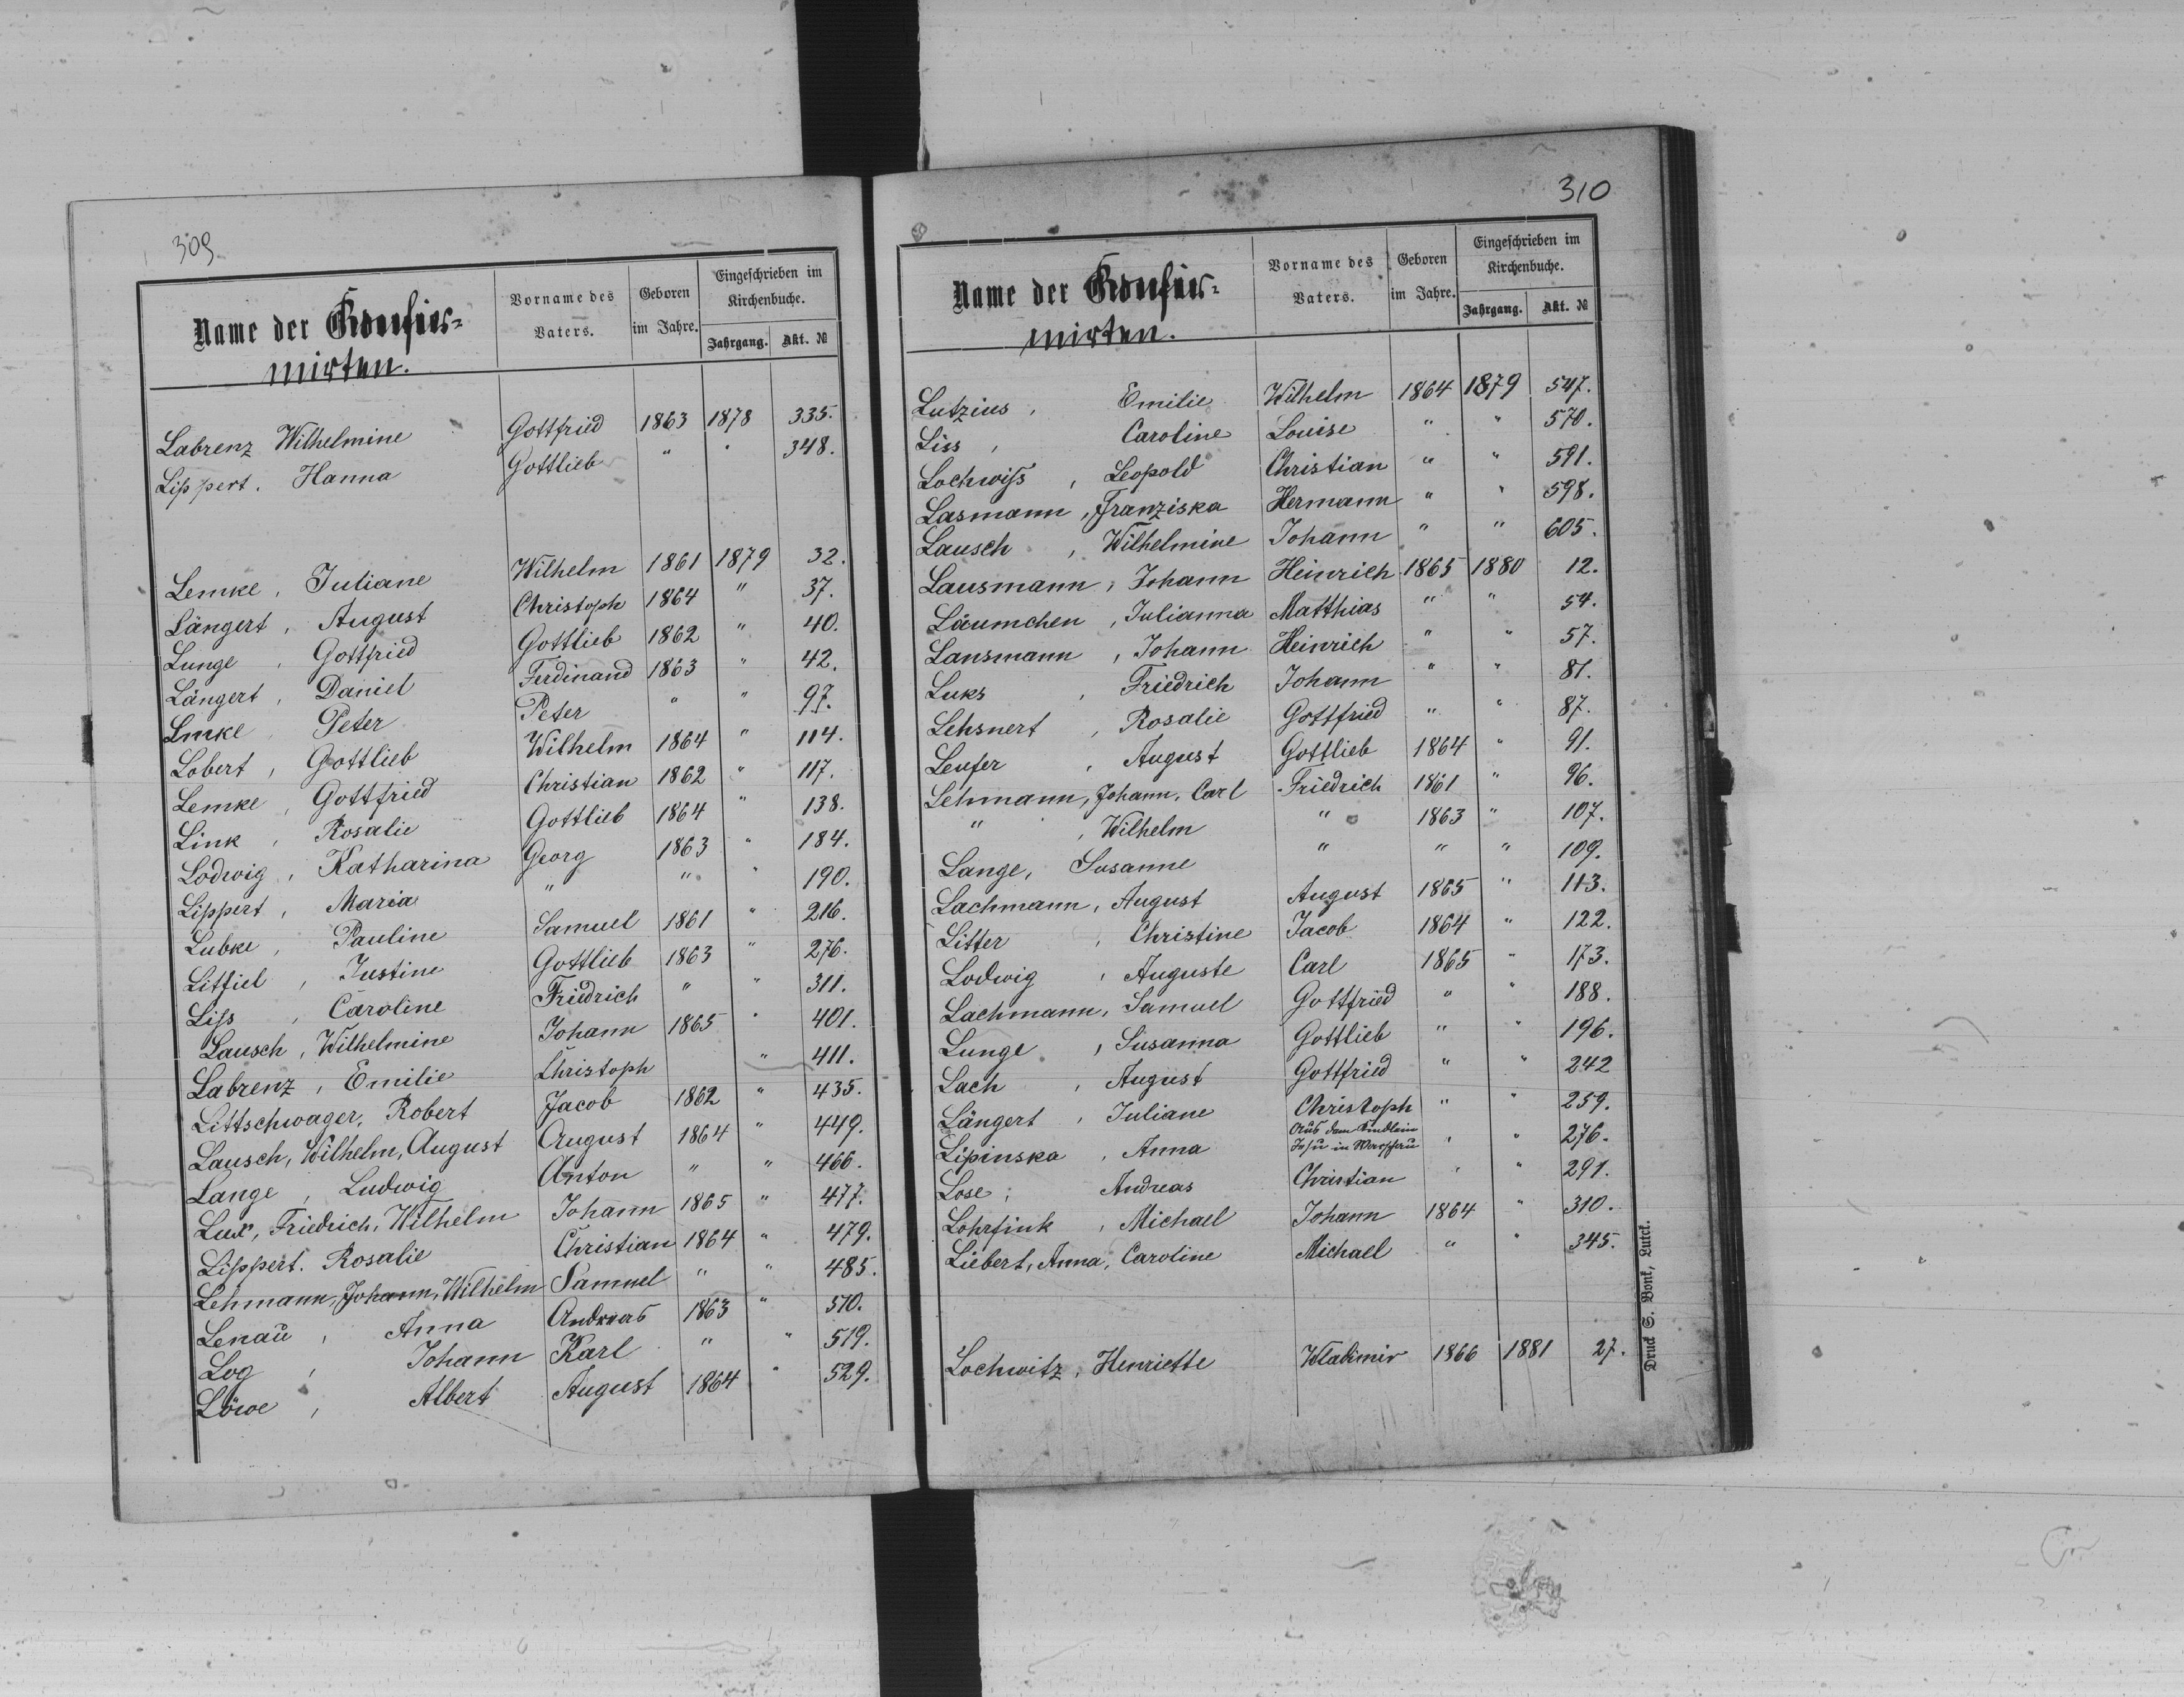 309
Name der Konfir=
mirten.
Vorname des Vaters.
Geboren im Jahre.
Eingeschrieben im Kirchenbuche.
Jahrgang. Akt. №
Labrenz Wilhelmine Gottfried 1863 1878 335.
Lippert. Hanna Gottlieb " " 348.
Lemke, Juliane Wilhelm 1861 1879 32.
Längert, August Christoph 1864 " 37.
Lunge, Gottfried Gottlieb 1862 " 40.
Längert, Daniel Ferdinand 1863 " 42.
Lmke, Peter Peter " " 97.
Lobert, Gottlieb Wilhelm 1864 " 114.
Lemke, Gottfried Christian 1862 " 117.
Link, Rosalie Gottlieb 1864 " 138.
Lodwig, Katharina Georg 1863 " 184.
Lippert, Maria " " " 190.
Lubke, Pauline Samuel 1861 " 216.
Litfiel, Justine Gottlieb 1863 " 276.
Liss, Caroline Friedrich " " 311.
Lausch, Wilhelmine Johann 1865 " 401.
Labrenz, Emilie Christoph " 411.
Littschwager, Robert Jacob 1862 " 435.
Lausch, Wilhelm, August August 1864 " 449.
Lange, Ludwig Anton " " 466.
Lux, Friedrich, Wilhelm Johann 1865 " 477.
Lippert. Rosalie Christian 1864 " 479.
Lehmann, Johann, Wilhelm Samuel " " 485.
Lenau, Anna Andreas 1863 " 510.
Log, Johann Karl " " 519.
Löwe, Albert August 1864 " 529.
310
Name der Konfir=
mirten.
Vorname des Vaters.
Geboren im Jahre.
Eingeschrieben im Kirchenbuche.
Jahrgang. Akt. №
Lutzius, Emilie Wilhelm 1864 1879 547.
Liss, Caroline Louise " " 570.
Lochwiss, Leopold Christian " " 591.
Lasmann, Franziska Hermann " " 598.
Lausch, Wilhelmine Johann " " 605.
Lausmann, Johann Heinrich 1865 1880 12.
Läumchen, Julianna Matthias " " 54.
Lansmann, Johann Heinrich " " 57.
Luks, Friedrich Johann " " 81.
Lehsnert, Rosalie Gottfried " " 87.
Leufer, August Gottlieb 1864 " 91.
Lehmann, Johann, Carl Friedrich 1861 " 96.
" , Wilhelm " 1863 " 107.
Lange, Susanne " " " 109.
Lachmann, August August 1865 " 113.
Litter, Christine Jacob 1864 " 122.
Lodwig, Auguste Carl 1865 " 173.
Lachmann, Samuel Gottfried " " 188.
Lunge, Susanna Gottlieb " " 196.
Lach, August Gottfried " " 242
Längert, Juliane Christoph " " 259.
Lipinska, Anna Aus dem Kindlein Jesu in Warschau " " 276.
Lose, Andreas Christian " " 291.
Lohrfink, Michael Johann 1864 " 310.
Liebert, Anna, Caroline Michael " " 345.
Lochwitz, Henriette Wladimir 1866 1881 27.
Druck S. Bonk, Luck.